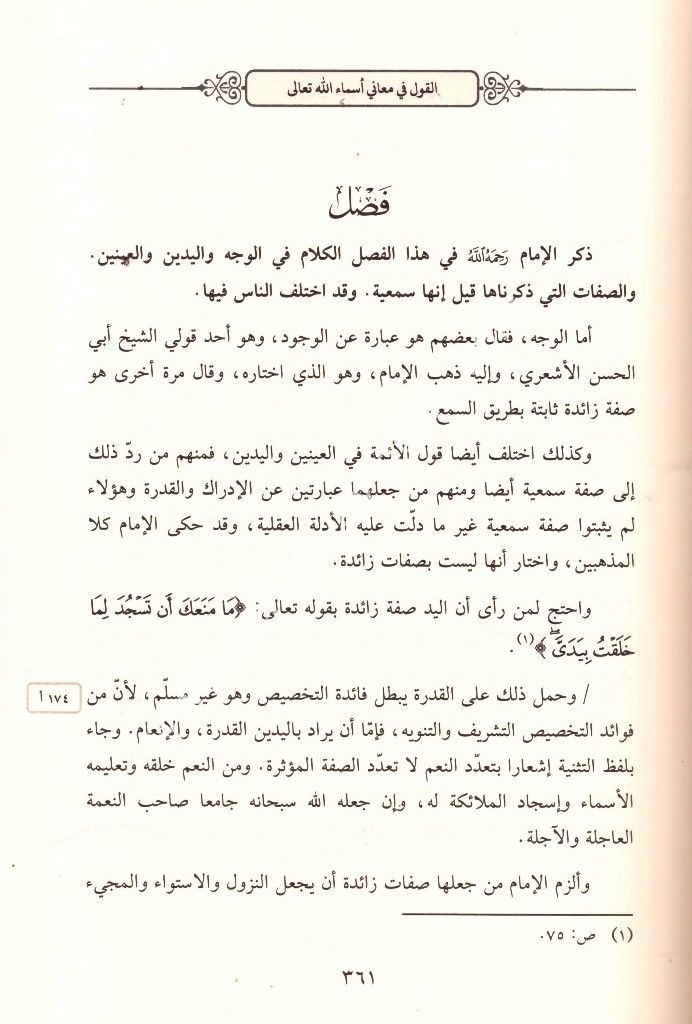 القول في معاني أسماء الله تعالى
فَصْل
ذكر الإمام رَحِمَهُ ٱللَّهُ في هذا الفصل الكلام في الوجه واليدين والعينين.
والصفات التي ذكرناها قيل إنها سمعية. وقد اختلف الناس فيها.
أما الوجه، فقال بعضهم هو عبارة عن الوجود، وهو أحد قولي الشيخ أبي
الحسن الأشعري، وإليه ذهب الإمام، وهو الذي اختاره، وقال مرة أخرى هو
صفة زائدة ثابتة بطريق السمع.
وكذلك اختلف أيضا قول الأئمة في العينين واليدين، فمنهم من ردّ ذلك
إلى صفة سمعية أيضا ومنهم من جعلهما عبارتين عن الإدراك والقدرة وهؤلاء
لم يثبتوا صفة سمعية غير ما دلّت عليه الأدلة العقلية، وقد حكى الإمام كلا
المذهبين، واختار أنها ليست بصفات زائدة.
واحتج لمن رأى أن اليد صفة زائدة بقوله تعالى: ﴿مَا مَنَعَكَ أَن تَسْجُدَ لِمَا
خَلَقْتُ بِيَدَيَّ ۖ﴾(١).
/ وحمل ذلك على القدرة يبطل فائدة التخصيص وهو غير مسلّم، لأنّ من
١٧٤ أ
فوائد التخصيص التشريف والتنويه، فإمّا أن يراد باليدين القدرة، والإنعام. وجاء
بلفظ التثنية إشعارا بتعدّد النعم لا تعدّد الصفة المؤثرة. ومن النعم خلقه وتعليمه
الأسماء وإسجاد الملائكة له، وإن جعله الله سبحانه جامعا صاحب النعمة
العاجلة والآجلة.
وألزم الإمام من جعلها صفات زائدة أن يجعل النزول والاستواء والمجيء
(١) ص: ٧٥.
٣٦١